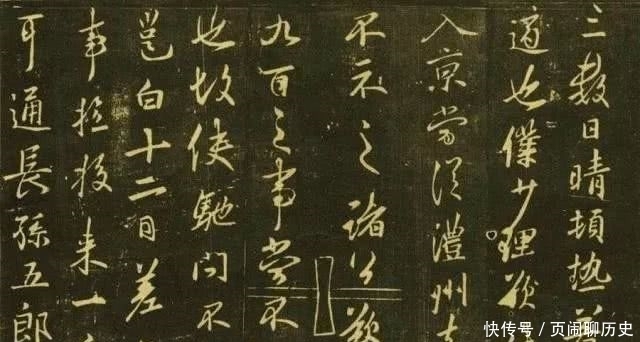 三數日晴頓熱
適也僕少理
入京當從澧州去
不示之諸公
九百之事當不
也故使馳問不
邕白十二日差
事投來一
可通長孫五郎
快传号/页闹聊历史